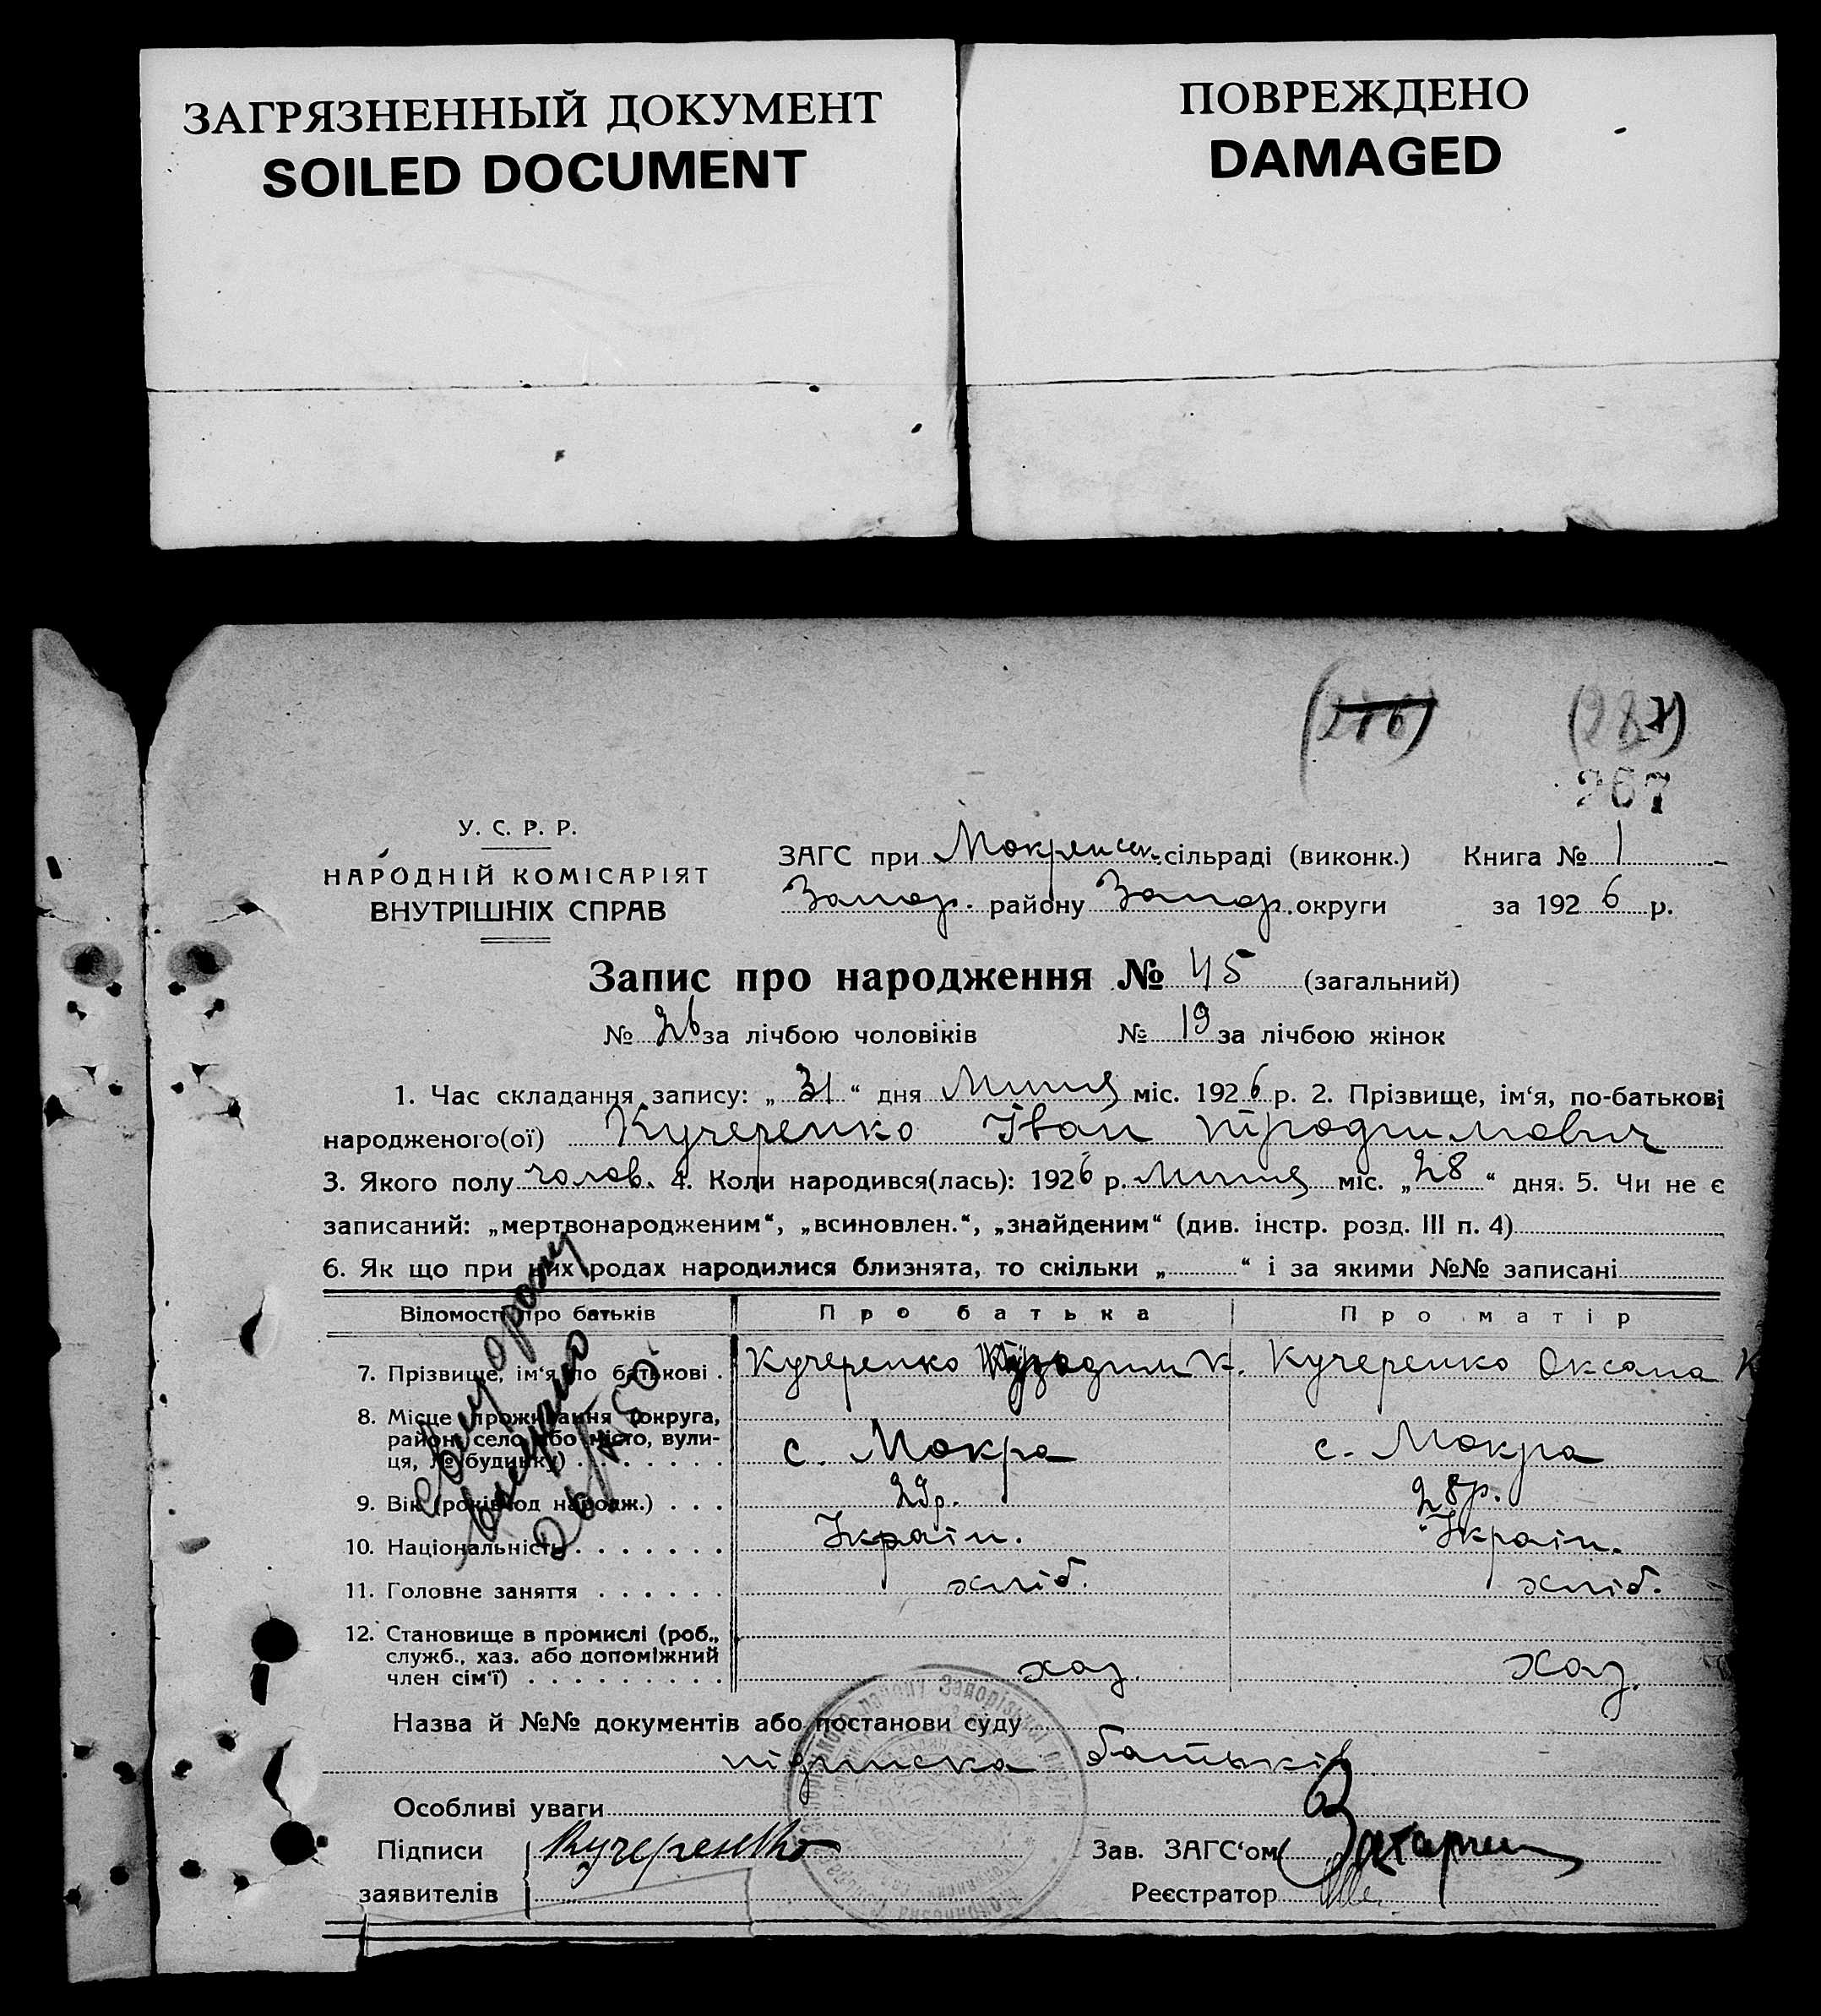 ЗАГРЯЗНЕННЫЙ ДОКУМЕНТ
SOILED DOCUMENT
ПОВРЕЖДЕНО
DAMAGED
(287)
267
У. С. Р. Р.
НАРОДНІЙ КОМІСАРІЯТ
ВНУТРІШНІХ СПРАВ
ЗАГС при Мокрянськ. сільраді (виконк.) Книга № 1
Запор. району Запор. округи за 1926 р.
Запис про народження № 45 (загальний)
№ 26 за лічбою чоловіків № 19 за лічбою жінок
1. Час складання запису: „31“ дня Липця міс. 1926 р. 2. Прізвище, ім‘я, по-батькові
народженого(ої) Кучеренко Іван
3. Якого полу чолов. 4. Коли народився(лась): 1926 р. Липця міс. „28“ дня. 5. Чи не є
записаний: „мертвонародженим“, „всиновлен.“, „знайденим“ (див. інстр. розд. III п. 4)
6. Як що при них родах народилися близнята, то скільки „ “ і за якими №№ записані
Відомості про батьків Про батька Про матір
7. Прізвище, ім‘я по батькові . Кучеренко К. Кучеренко Оксана К
8. Місце проживання (округа,
район, село або місто, вули-
ця, № будинку) . . . . . . . с. Мокра с. Мокра
9. Вік (років од народж.) . . . 29р. 28р.
10. Національність . . . . . . . Україн. Україн.
11. Головне заняття . . . . . . хліб. хліб.
12. Становище в промислі (роб.,
служб., хаз. або допоміжний
член сім‘ї) . . . . . . . . . хаз. хаз.
Назва й №№ документів або постанови суду
підписка батьків
Особливі уваги
Підписи Кучеренко Зав. ЗАГС‘ом
заявителів Реєстратор